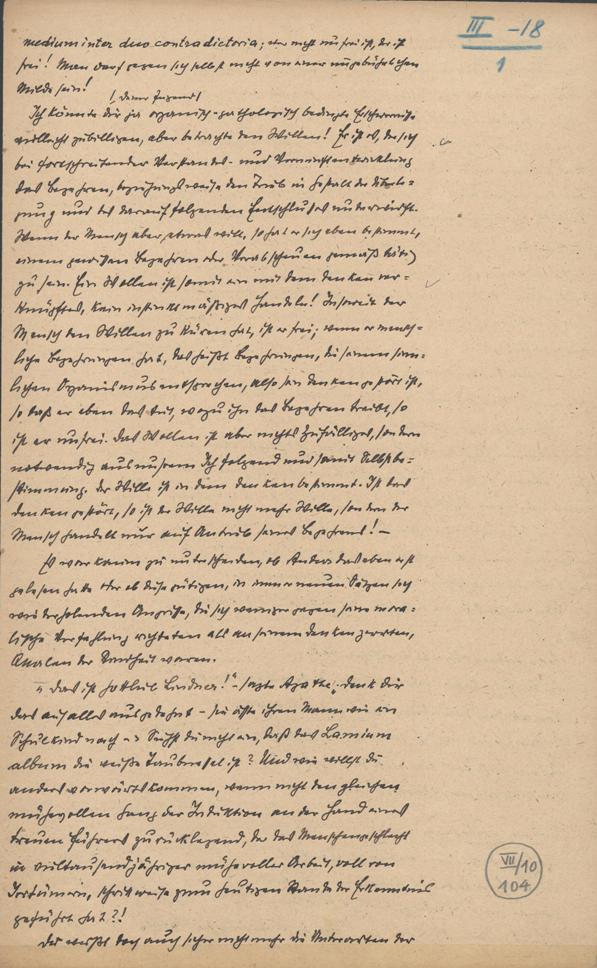 III -18
1
medium inter duo contradictoria; wer nicht unfrei ist, der ist
frei! Man darf gegen sich selbst nicht von einer ungebührlichen
Milde sein!
Ich könnte dir ja organisch-pathologisch bedingte Erschwernisse
vielleicht zubilligen, aber betrachte den Willen! Er ist es, der sich
bei fortschreitender Verstandes- und Vernunftentwicklung
das Begehren, beziehungsweise den Trieb in Gestalt der Überle-
gung und des darauf folgenden Entschlusses unterwirft.
Wenn der Mensch aber etwas will, so hat er sich eben bestimmt,
einem gewissen Begehren oder Verabscheuen gemäß tätig
zu sein. Ein Wollen ist somit ein mit dem denken ver-
knüpftes, kein instinktmäßiges Handeln! Insoweit der
Mensch den Willen zu küren hat, ist er frei; wenn er mensch-
liche Begehrungen hat, das heißt Begehrungen, die seinem sinn-
lichen Organismus entsprechen, also sein denken gestört ist,
so daß er eben das tut, wozu ihn das Begehren treibt, so
ist er unfrei. Das Wollen ist aber nichts Zufälliges, sondern
notwendig aus unserem Ich folgend und somit Selbstbe-
stimmung. Der Wille ist in dem denken bestimmt. Ist das
denken gestört, so ist der Wille nicht mehr Wille, sondern der
Mensch handelt nur auf Antrieb seines Begehrens! –
Es war kaum zu unterscheiden, ob Anders das eben erst
gelesen hatte oder ob diese gütigen, in immer neuen Sätzen sich
wiederholenden Angriffe, die sich weniger gegen seine mora-
lische Verfehlung richteten als an seinem denken zerrten,
Qualen der Kindheit waren.
„Das ist Gottlieb Lindner!" – sagte Agathe; denk dir
das auf alles ausgedehnt – sie äffte ihren Mann wie ein
Schulkind nach –: Siehst du nicht ein, daß das Lamium
album die weiße Taubnessel ist? Und wie willst du
anders vorwärts kommen, wenn nicht den gleichen
mühevollen Gang der Induktion an der Hand eines
treuen Führers zurücklegend, der das Menschengeschlecht
in vieltausendjähriger mühevoller Arbeit, voll von
Irrtümern, schrittweise zum heutigen Stande der Erkenntnis
geführt hat?!
Du weißt doch auch sicher nicht mehr die Unterarten der
VII/10
104